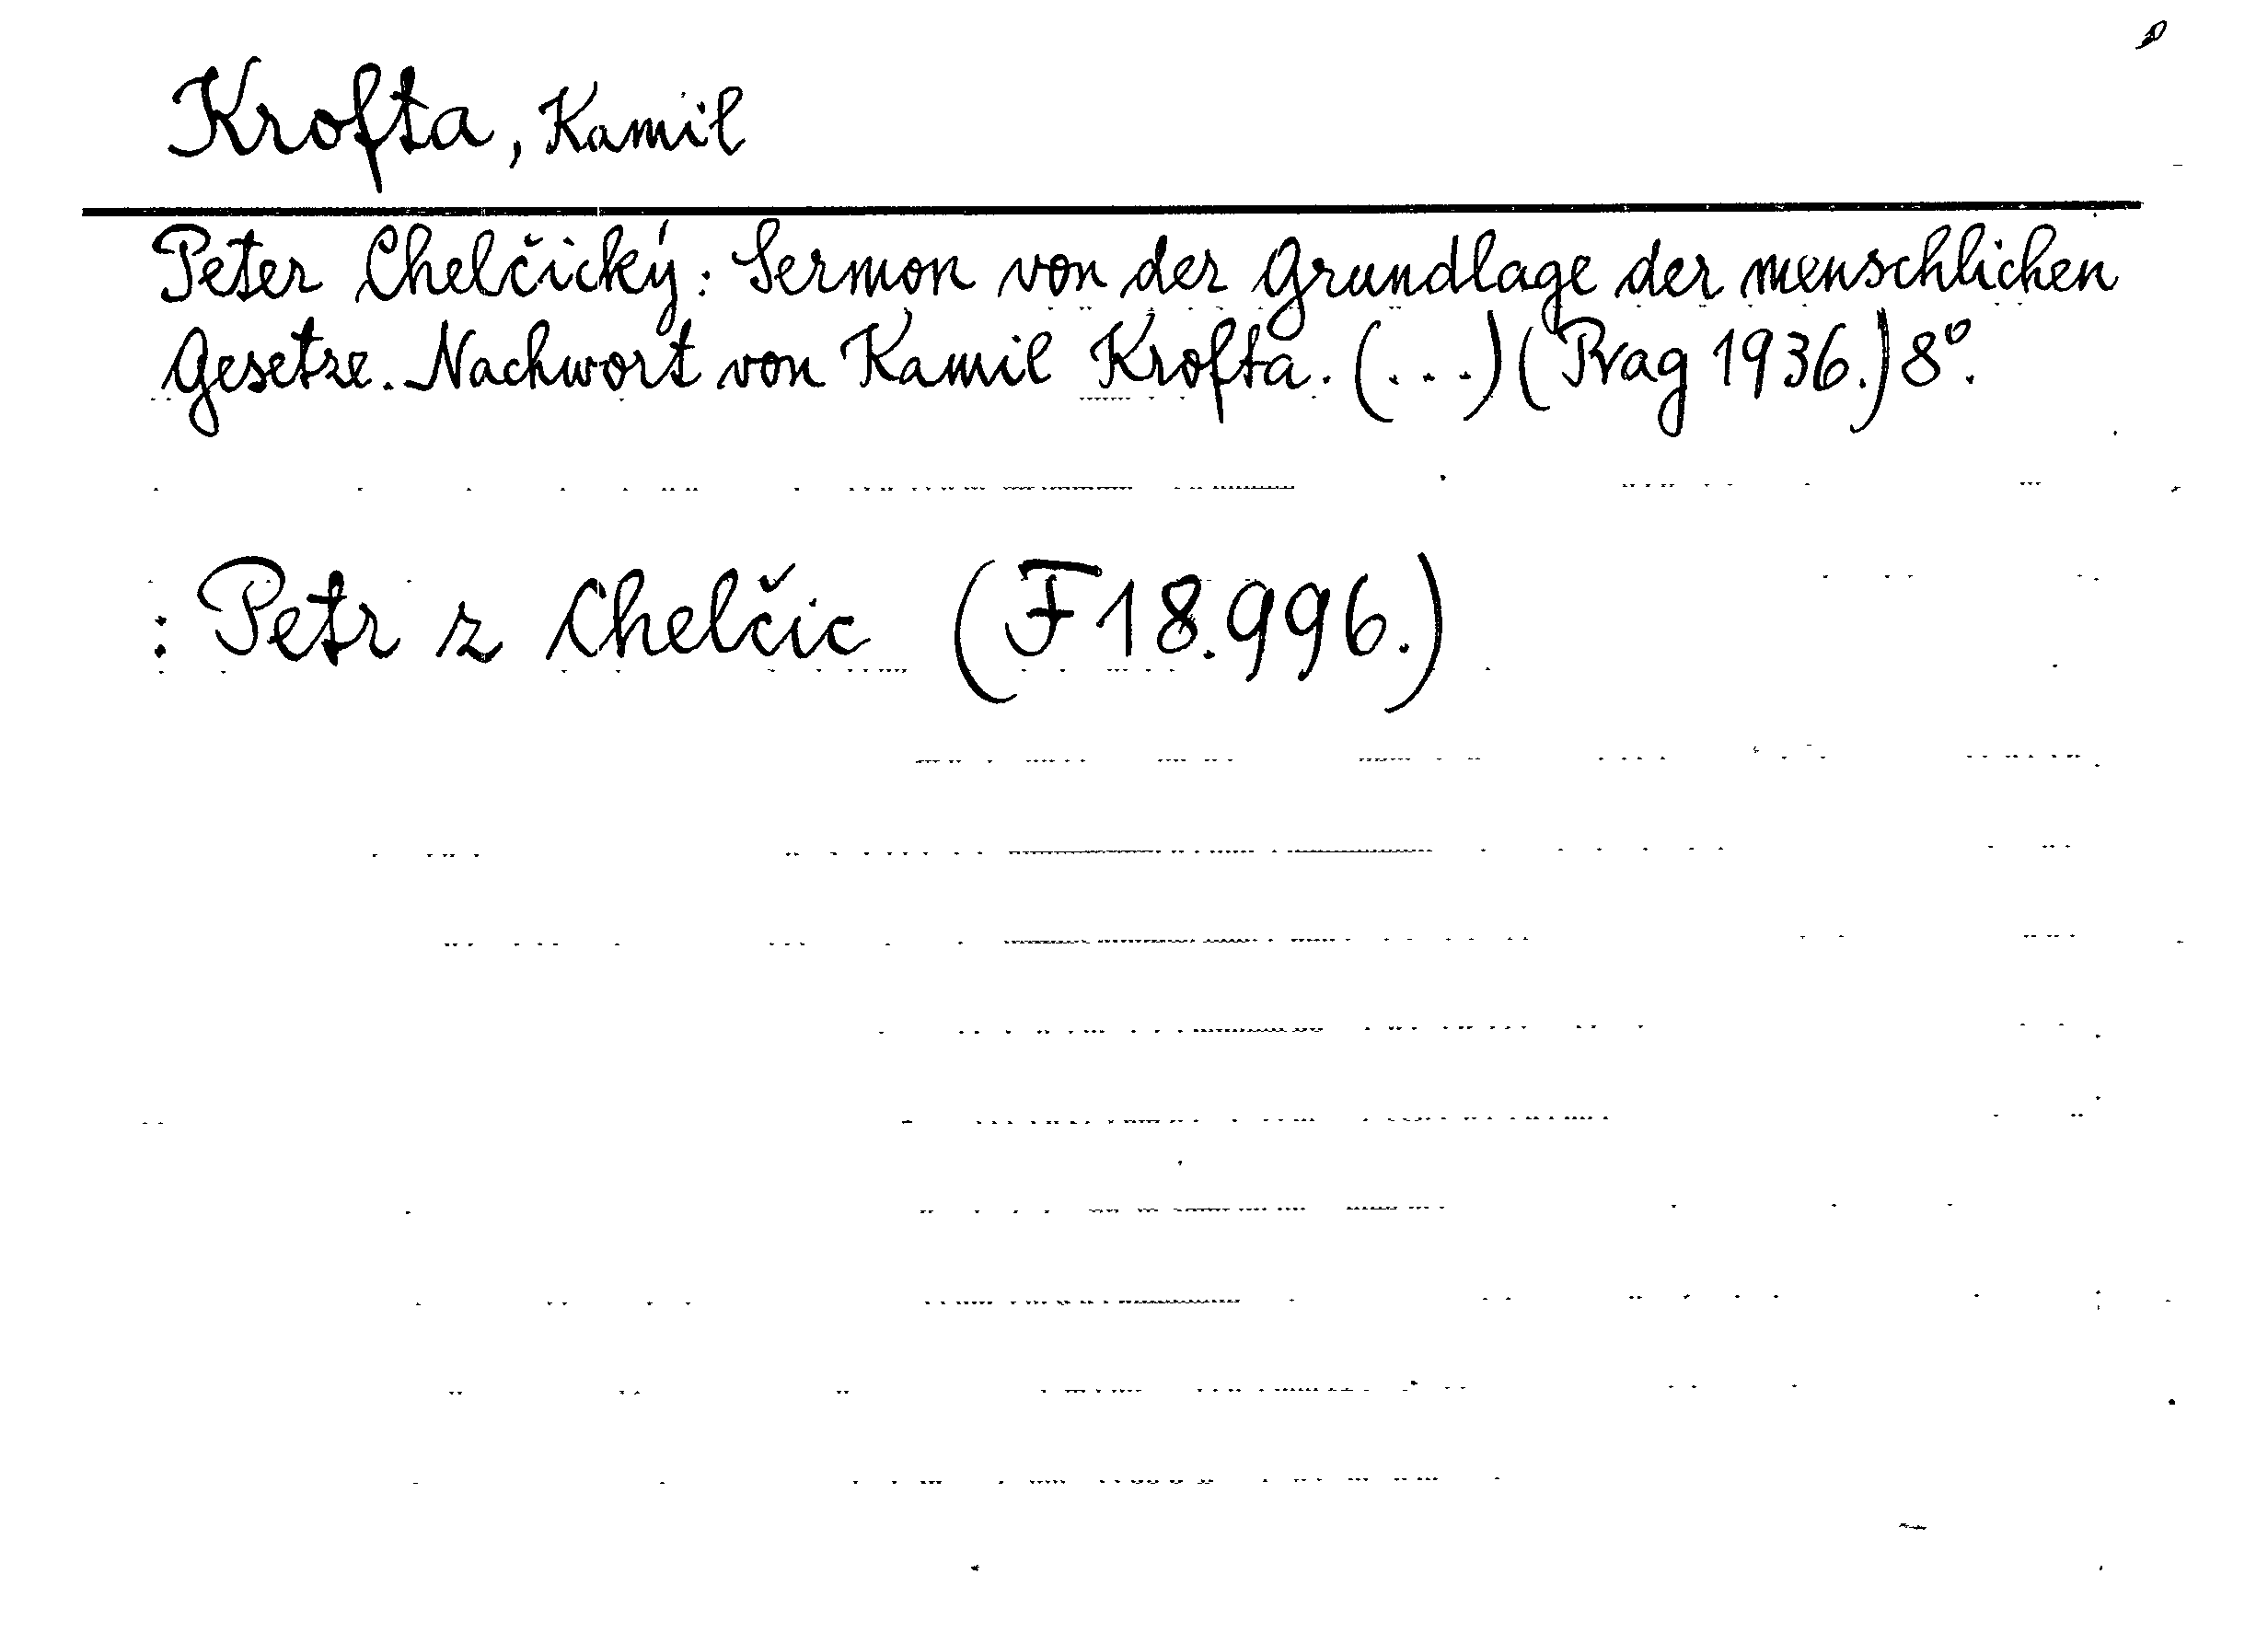 Krofta, Kamil
Peter Chelčický: Sermon von der Grundlage der menschlichen
Gesetze. Nachwort von Kamil Krofta. (...) (Prag 1936.) 8°.
: Petr z Chelčic (F 18.996.)